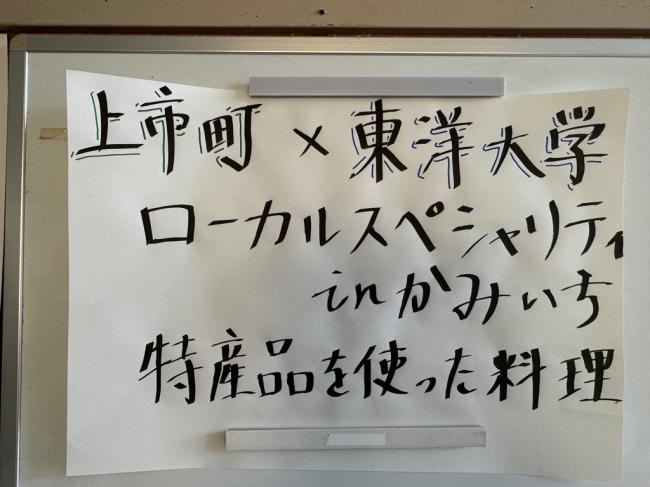 上市町×東洋大学
ローカルスペシャリティ
inかみいち
特産品を使った料理